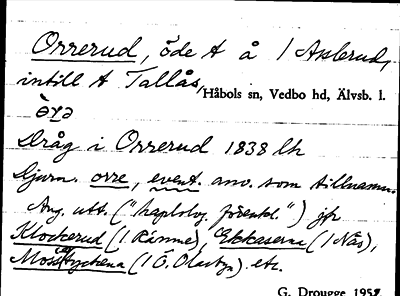 Orrerud, öde t å 1 Asslerud,
intill t Tallås,
Håbols sn, Vedbo hd, Älvsb. l.
Dråg i Orrerud 1838 lh
Gjurn. orre, event. anv. som tillnamn.
Ang. utt. ("haplolog. förenkl.") jfr
Klockerud (1. Rämne), Ekkaserna (1 Näs),
(1 Ö. etc.
G. Drougge 195